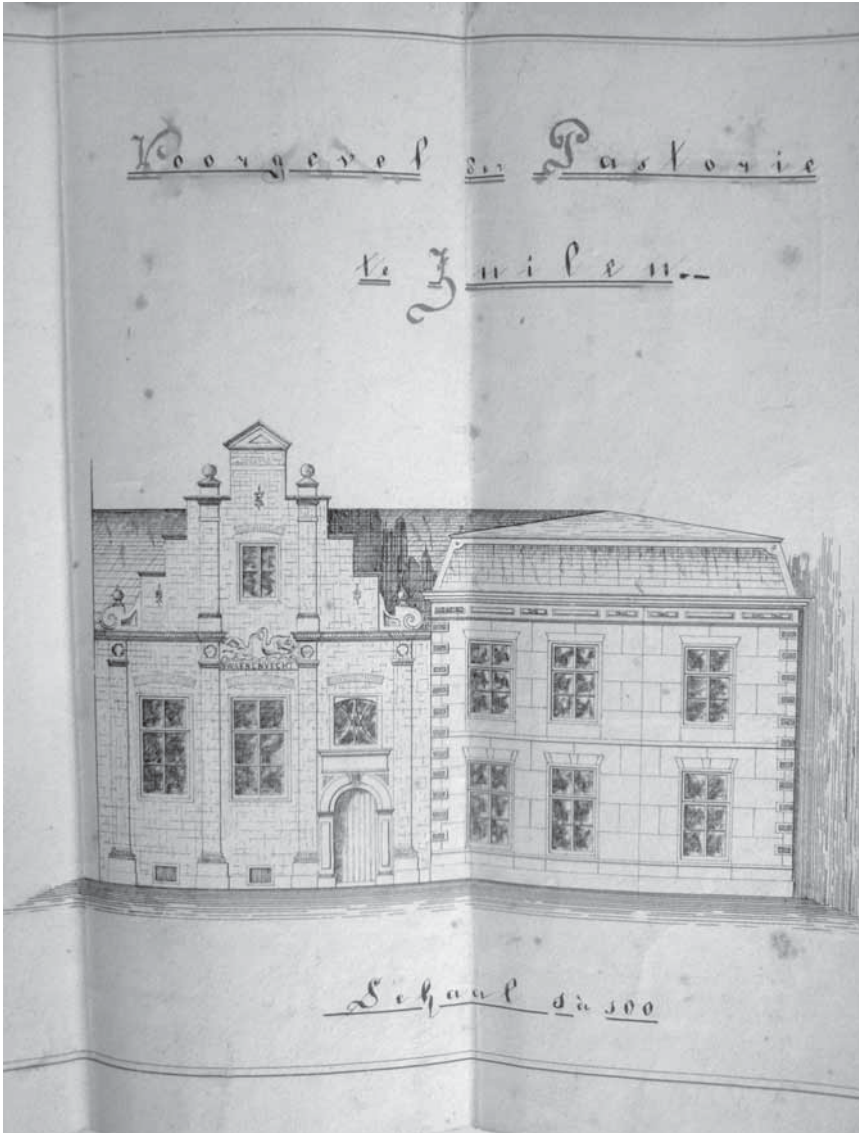 Voorgevel der Pastorie
te Zuilen.-
Schaal 1 à 100